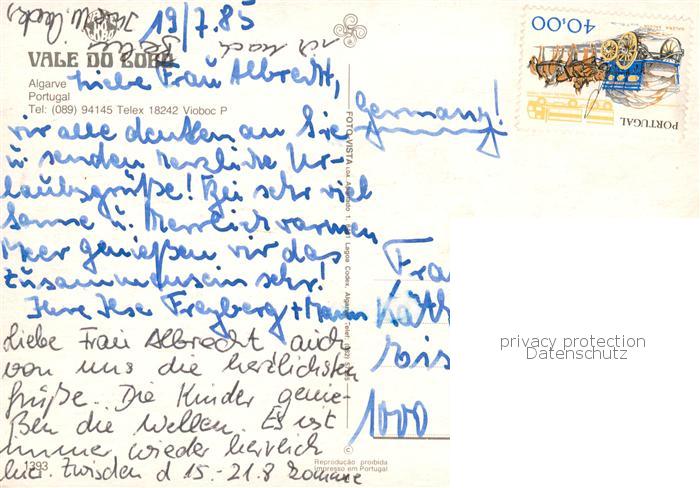 19/7.85
VALE DO LOBO
Algarve
Portugal
Tel: (089) 94145 Telex 18242 Vioboc P
Liebe Frau Albrecht,
wir alle denken an Sie
u. senden herzliche Ur-
laubsgrüße! Bei sehr viel
Sonne u. herrlich warmen
Meer genießen wir das
Zusammensein sehr!
Ihre Ilse Freyberg + Mann
Liebe Frau Albrecht auch
von uns die herzlichsten
Grüße. Die Kinder genie-
ßen die Wellen. Es ist
immer wieder herrlich
hier. Zwischen d 15.-21.8 komme
ich nach
Berlin
1393
FOTO VISTA
Reprodução proibida
Impresso em Portugal
Germany!
40,00
PORTUGAL
Frau
Käth
1000
privacy protection
Datenschutz